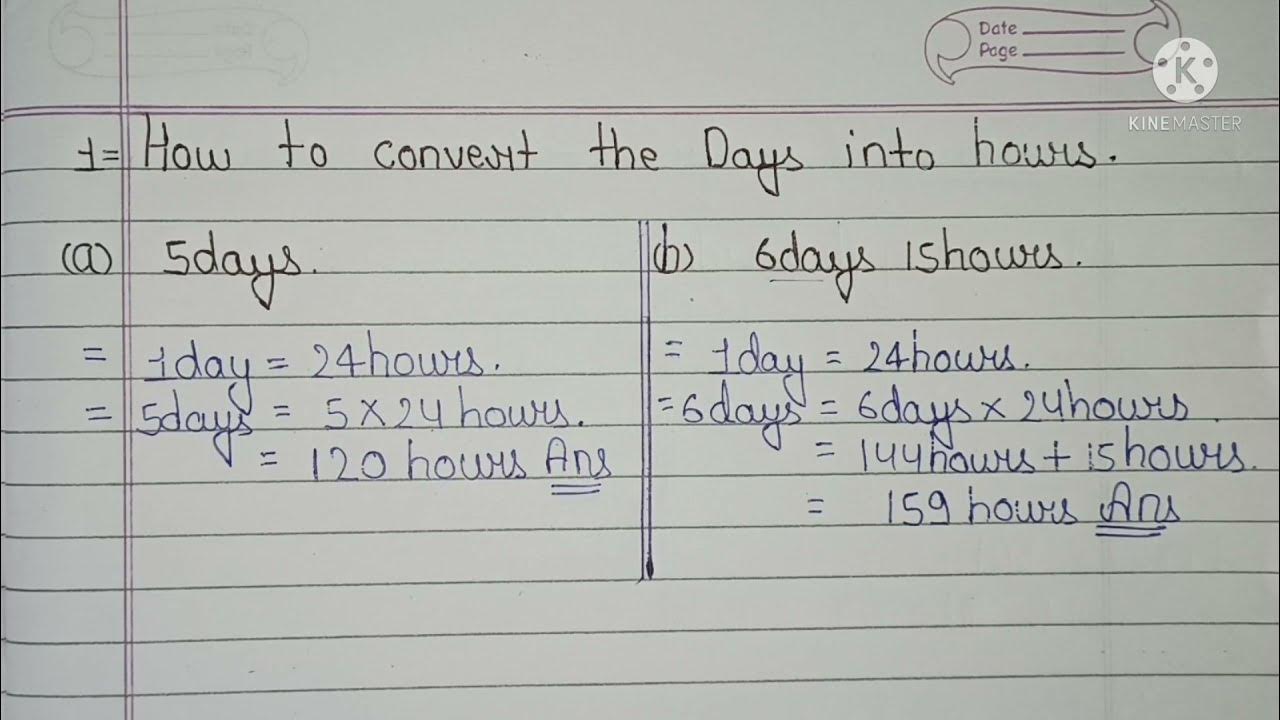 Date
Page
KINEMASTER
1= How to convert the Days into hours.
(a) 5days.
= 1day = 24hours.
= 5days = 5 X 24 hours.
= 120 hours Ans
(b) 6days 15hours.
= 1day = 24hours.
=6days = 6days x 24hours.
= 144hours + 15hours.
= 159 hours Ans